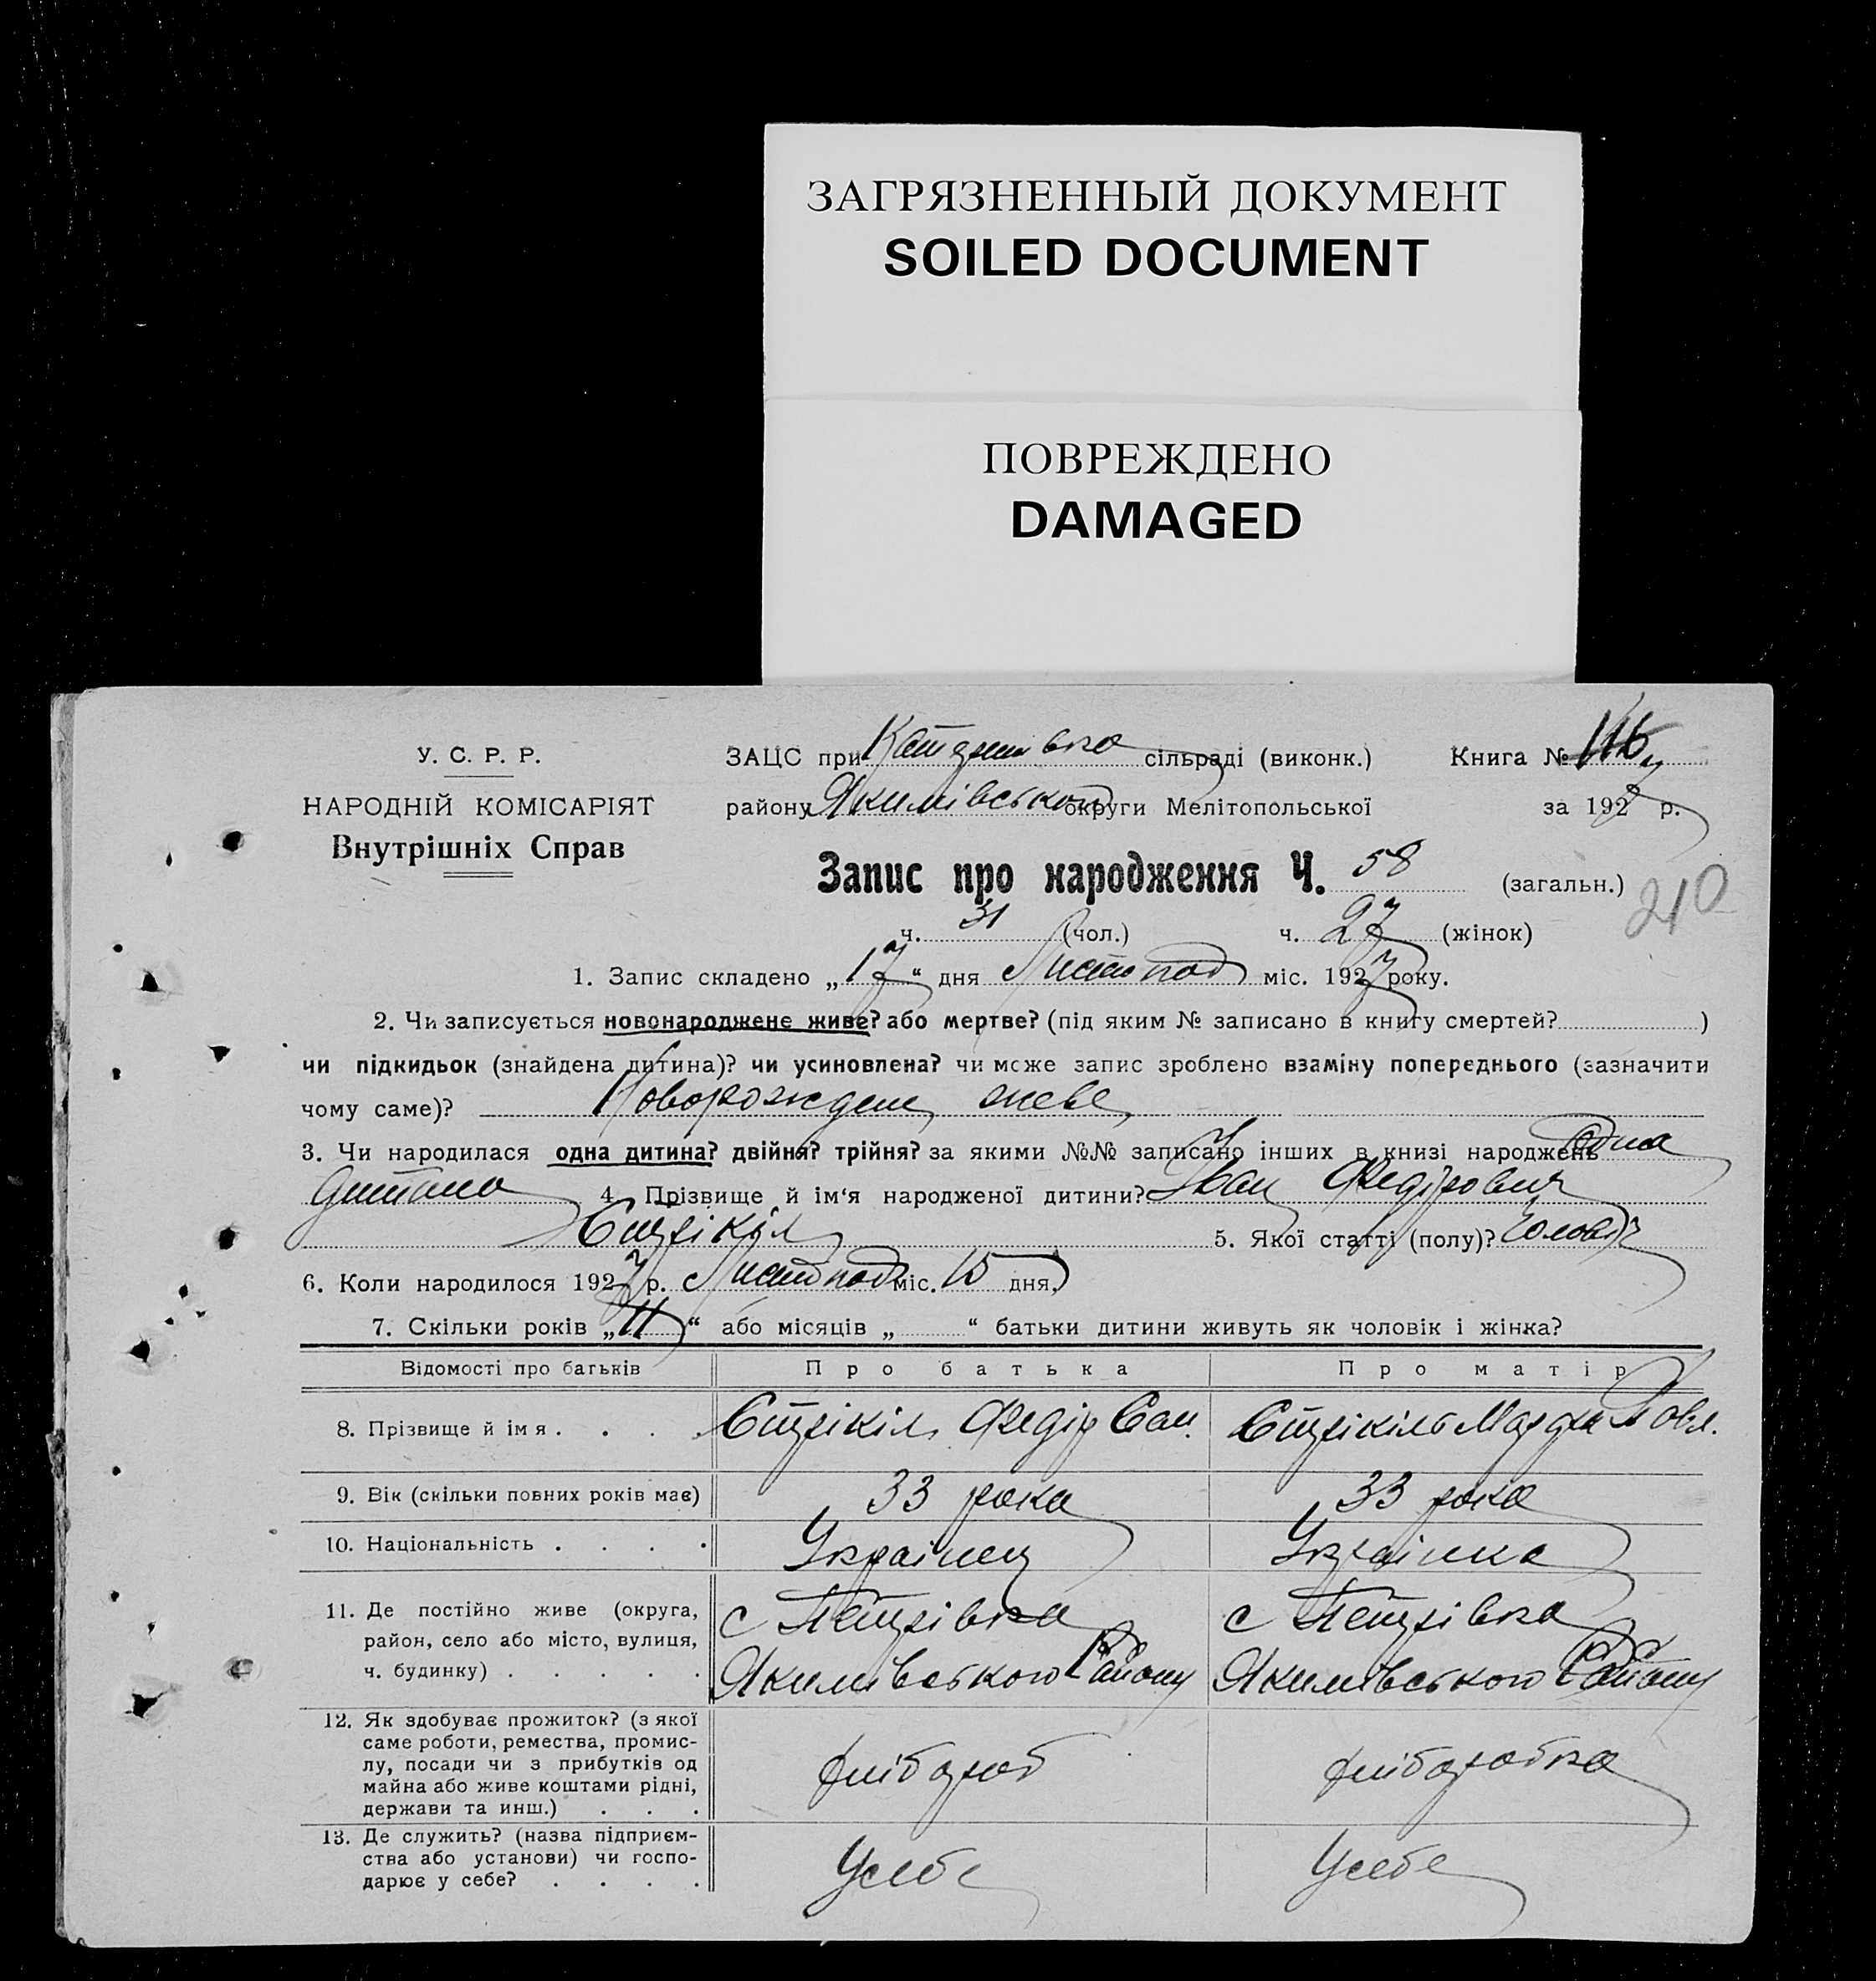 ЗАГРЯЗНЕННЫЙ ДОКУМЕНТ
SOILED DOCUMENT
ПОВРЕЖДЕНО
DAMAGED
У. С. Р. Р.
НАРОДНІЙ КОМІСАРІЯТ
Внутрішніх Справ
ЗАЦС при сільраді (виконк.) Книга № 116
району Якимівського округи Мелітопольської за 1927 р.
Запис про народження Ч. 58 (загальн.)
210
ч. 31 (чол.) ч. 27 (жінок)
1. Запис складено „17“ дня Листопад міс. 1927 року.
2. Чи записується новонароджене живе? або мертве? (під яким № записано в книгу смертей? )
чи підкидьок (знайдена дитина)? чи усиновлена? чи може запис зроблено взаміну попереднього (зазначити
чому саме)? Новорождене живе
3. Чи народилася одна дитина? двійня? трійня? за якими №№ записано інших в книзі народжень одна
дитина 4. Прізвище й ім'я народженої дитини? Іван Федірович
Стрікіль 5. Якої статті (полу)? Чоловіч
6. Коли народилося 1927 р. Листопад міс. 15 дня.
7. Скільки років „11“ або місяців „ “ батьки дитини живуть як чоловік і жінка?
Відомості про батьків Про батька Про матір
8. Прізвище й імя . . . . Стрікіль Федір Сам. Стрікіль Павл.
9. Вік (скільки повних років має) 33 рока 33 рока
10. Національність . . . . Українец Українка
11. Де постійно живе (округа, с Петрівка с Петрівка
район, село або місто, вулиця,
ч. будинку) . . . . . Якимівського Району Якимівського Району
12. Як здобуває прожиток? (з якої
саме роботи, ремества, промис-
лу, посади чи з прибутків од
майна або живе коштами рідні, хлібороб хлібаробка
держави та инш.) . . .
13. Де служить? (назва підприєм-
ства або установи) чи госпо- Усебе Усебе
дарює у себе? . . . .